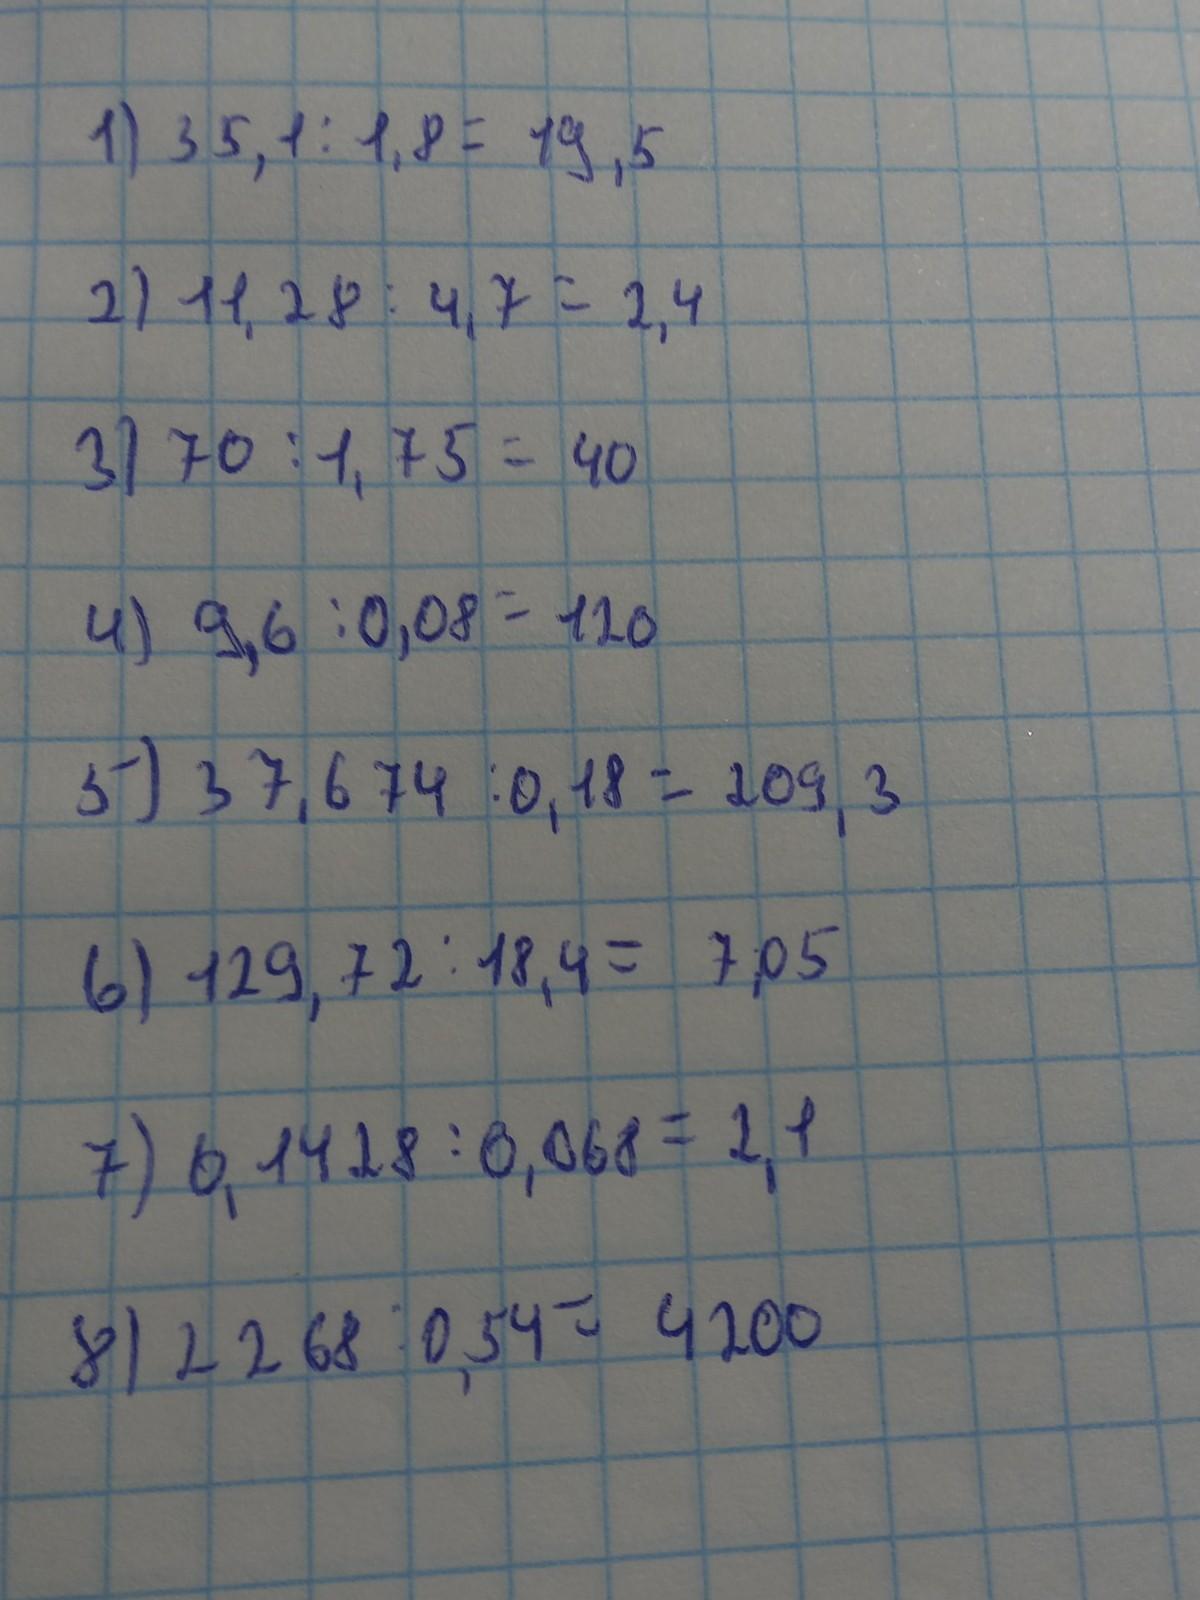 1) 35,1 : 1,8 = 19,5
2) 11,28 : 4,7 = 2,4
3) 70 : 1,75 = 40
4) 9,6 : 0,08 = 120
5) 37,674 : 0,18 = 209,3
6) 129,72 : 18,4 = 7,05
7) 0,1428 : 0,068 = 2,1
8) 2268 : 0,54 = 4200